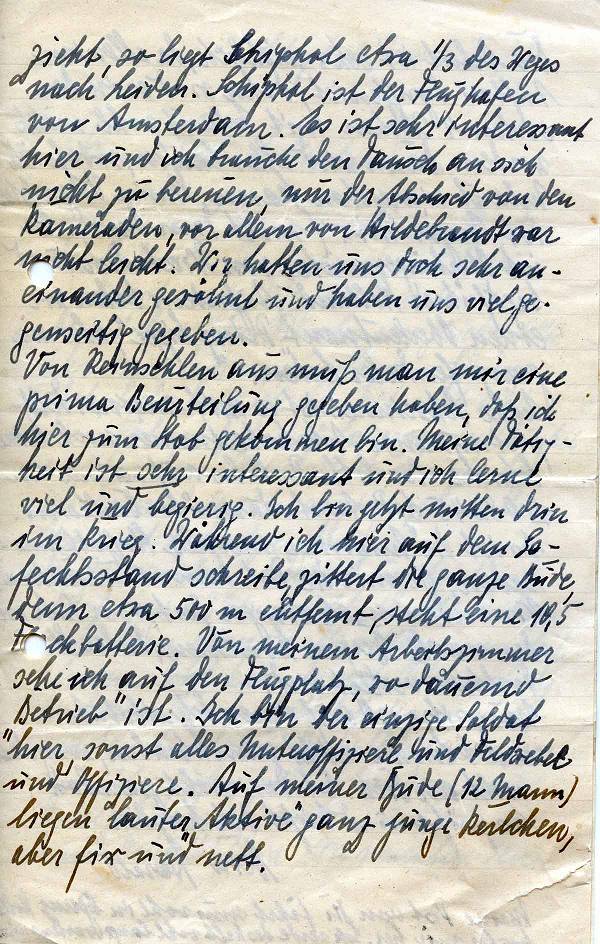 zieht, so liegt Schiphol etwa 1/3 des Weges
nach Leiden. Schiphol ist der Flughafen
von Amsterdam. Es ist sehr interessant
hier und ich brauche den Tausch an sich
nicht zu bereuen, nur der Abschied von den
Kameraden, vor allem von Hildebrandt war
nicht leicht. Wir hatten uns doch sehr an-
einander gewöhnt und haben uns viel ge-
genseitig gegeben.
Von aus muß man mir eine
prima Beurteilung gegeben haben, daß ich
hier zum Stab gekommen bin. Meine Tätig-
keit ist sehr interessant und ich lerne
viel und begierig. Ich bin jetzt mitten drin
im Krieg. Während ich hier auf dem Ge-
fechtsstand schreibe, zittert die ganze Bude,
denn etwa 500 m entfernt, steht eine 10,5
Flachbatterie. Von meinem Arbeitszimmer
sehe ich auf den Flugplatz, wo dauernd
"Betrieb" ist. Ich bin der einzige Soldat
hier, sonst alles Unteroffiziere und Feldwebel
und Offiziere. Auf meiner Bude (12 Mann)
liegen lauter "Aktive" ganz junge Kerlchen,
aber fix und nett.